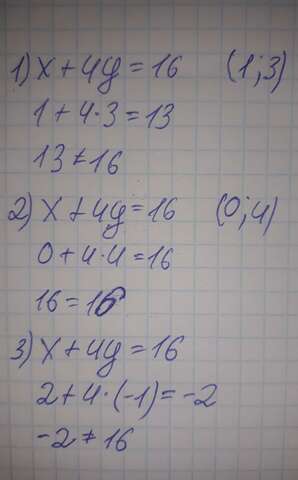 1) x + 4y = 16 (1; 3)
1 + 4·3 = 13
13 ≠ 16
2) x + 4y = 16 (0; 4)
0 + 4·4 = 16
16 = 16
3) x + 4y = 16
2 + 4·(-1) = -2
-2 ≠ 16